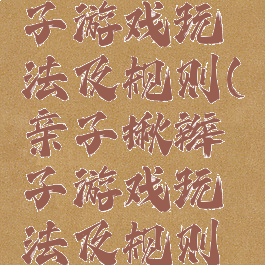 子游戏玩
法及规则(
亲子揪辫
子游戏玩
法及规则